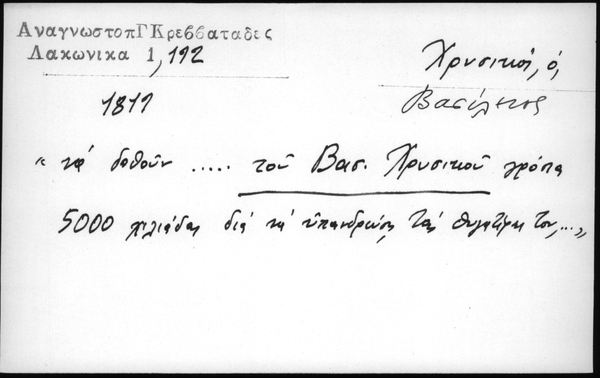 ΑναγνωστοπΓΚρεββαταδες
Λακωνικα 1, 192
Χρυσικοῦ, ὁ,
Βασίλειος
1811
" νά δοθοῦν ..... τοῦ Βασ. Χρυσικοῦ γρόσια
5000 χιλιάδας διά νά ὑπανδρεύσῃ τάς θυγατέρες του..."